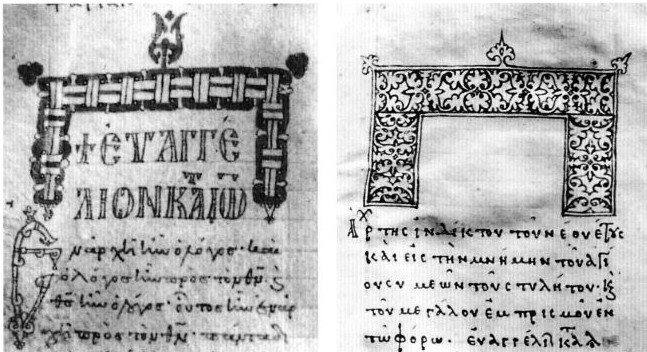 + ἐυαγγέ
λιον κατ ιω
Ἐν ἀρχῆ ἦν ὁ λόγος· καὶ
ὁ λόγος ἦν προς τὸν θν· ϛ
θς ἦν ὁ λόγος· οὗτος ἦν ἐν ἀρ
χῆ πρὸς τὸν θν· πάντα δι
Ἀρχ της ἰνδικτου του νεου ετους
και εις την μνημην του αγι
ου συμεων του στυλητου· κ
του μεγαλου εμπρισμου εν
τω φορω. ευαγγελι κτα